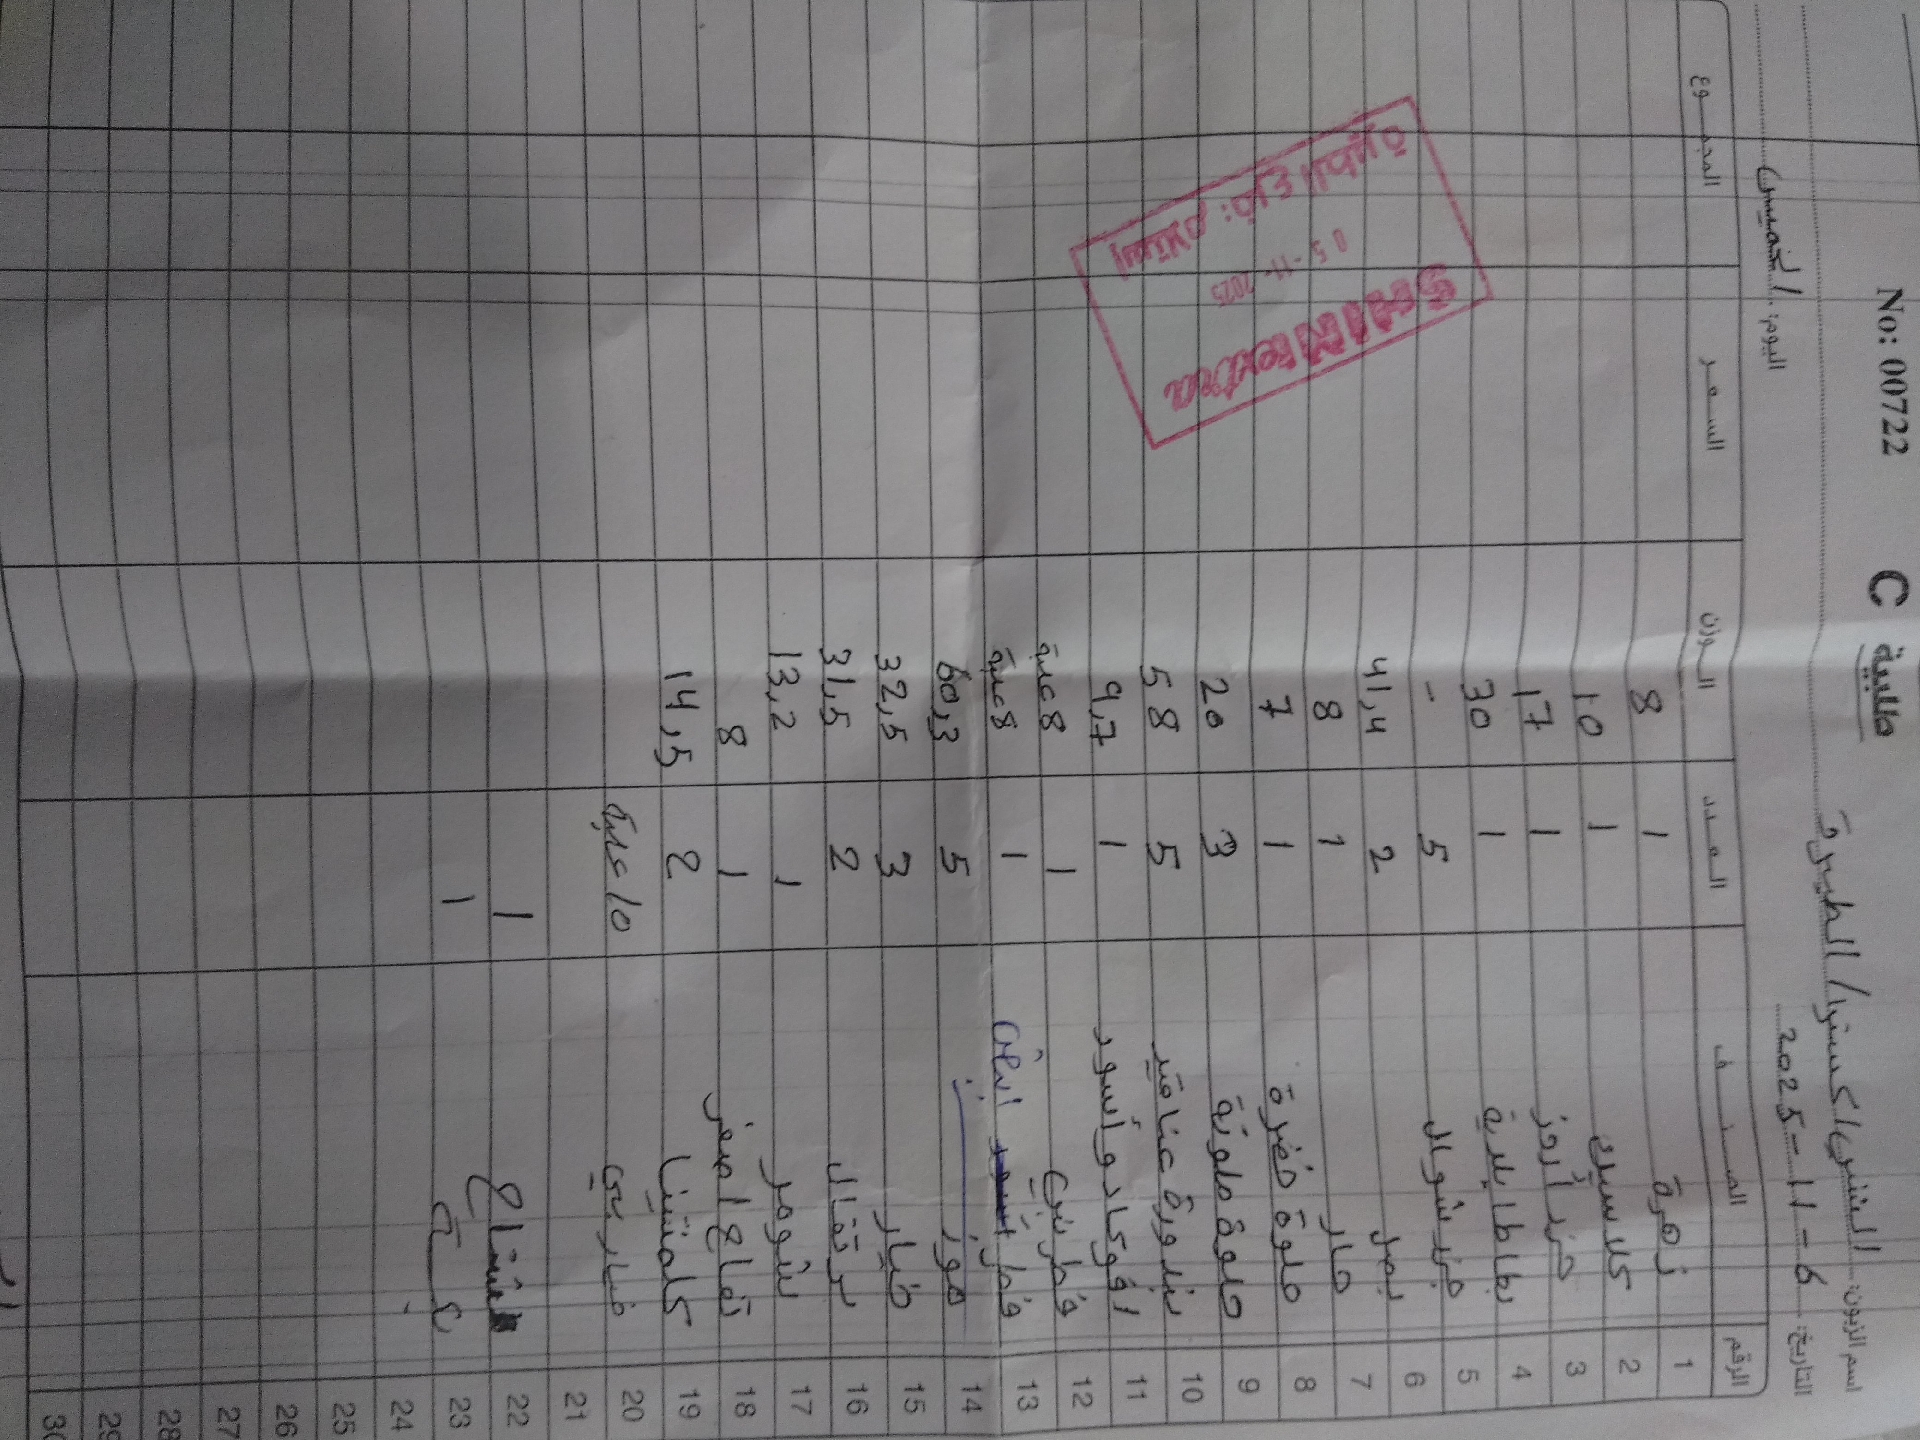 No: 00722 C طلبية
اسم الزبون: الشني اكسترا / الطيرة
التاريخ: 2025-11-6 اليوم: الخميس
الرقم الصنف العدد الوزن السعر المجموع
1 زهرة 1 8
2 كلاسيك 1 10
3 جزر 1 17
4 بطاطا بلدية 1 30
5 جزر شوال 5 -
6 بصل 2 41,4
7 حار 1 8
8 حلوة خضرة 1 7
9 حلوة ملونة 3 20
10 بندورة عناقيد 5 58
11 افوكادو أسود 1 9,7
12 فطر بني 1 8 علبة
13 فطر ابيض 1 8 علبة
14 موز 5 60,3
15 خيار 3 32,5
16 برتقال 2 31,5
17 شومر 1 13,2
18 تفاح اصفر 1 8
19 كلمنتينا 2 14,5
20 خيار بيبي 10 علبة
21
22 1
23 1
24
25
26
27
28
29
30
SHINI extra
05-11-2025
استلام: فرع الطيرة